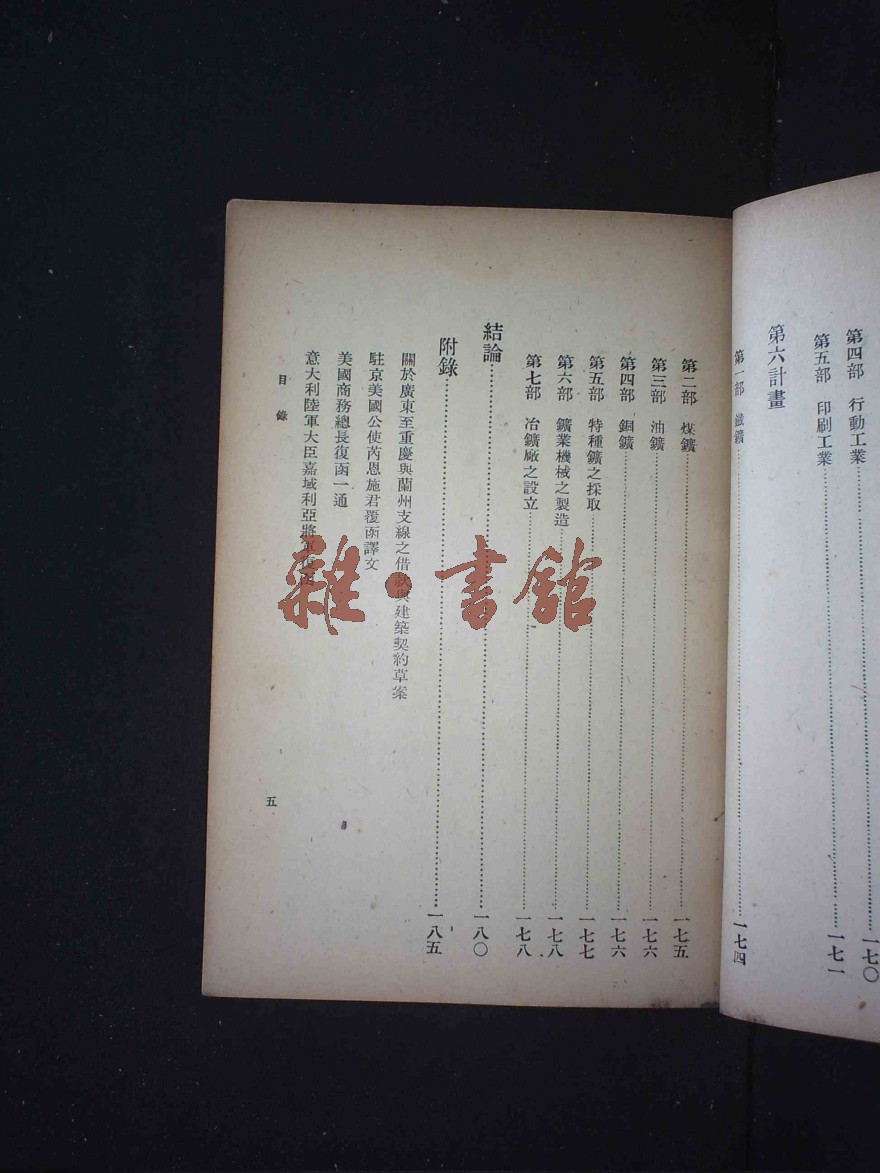 第四部 行動工業……一七〇
第五部 印刷工業……一七一
第六計畫
第一部 鐵鑛……一七四
第二部 煤鑛……一七五
第三部 油鑛……一七六
第四部 銅鑛……一七六
第五部 特種鑛之採取……一七七
第六部 鑛業機械之製造……一七八
第七部 冶鑛廠之設立……一七八
結論……一八〇
附錄……一八五
關於廣東至重慶與蘭州支線之借款與建築契約草案
駐京美國公使芮恩施君覆函譯文
美國商務總長復函一通
意大利陸軍大臣嘉域利亞將軍復函
目錄
五
雜·書館